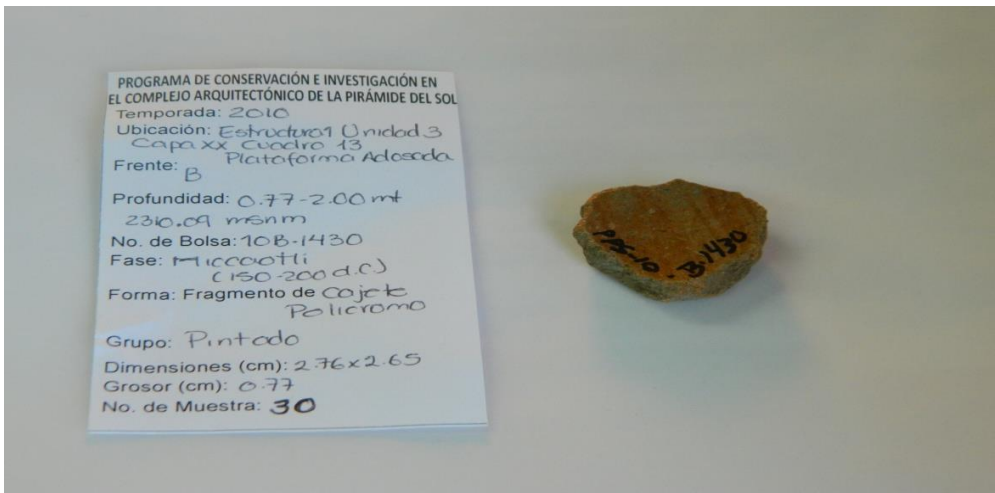 PROGRAMA DE CONSERVACIÓN E INVESTIGACIÓN EN
EL COMPLEJO ARQUITECTÓNICO DE LA PIRÁMIDE DEL SOL
Temporada: 2010
Ubicación: Estructura 1 Unidad 3
Capa XX Cuadro 13
Plataforma Adosada
Frente: B
Profundidad: 0.77-2.00 mt
2310.09 msnm
No. de Bolsa: 10B-1430
Fase: Miccaotli
(150-200 d.C.)
Forma: Fragmento de Cajete
Policromo
Grupo: Pintado
Dimensiones (cm): 2.76x2.65
Grosor (cm): 0.77
No. de Muestra: 30
PPS-10 -B-1430